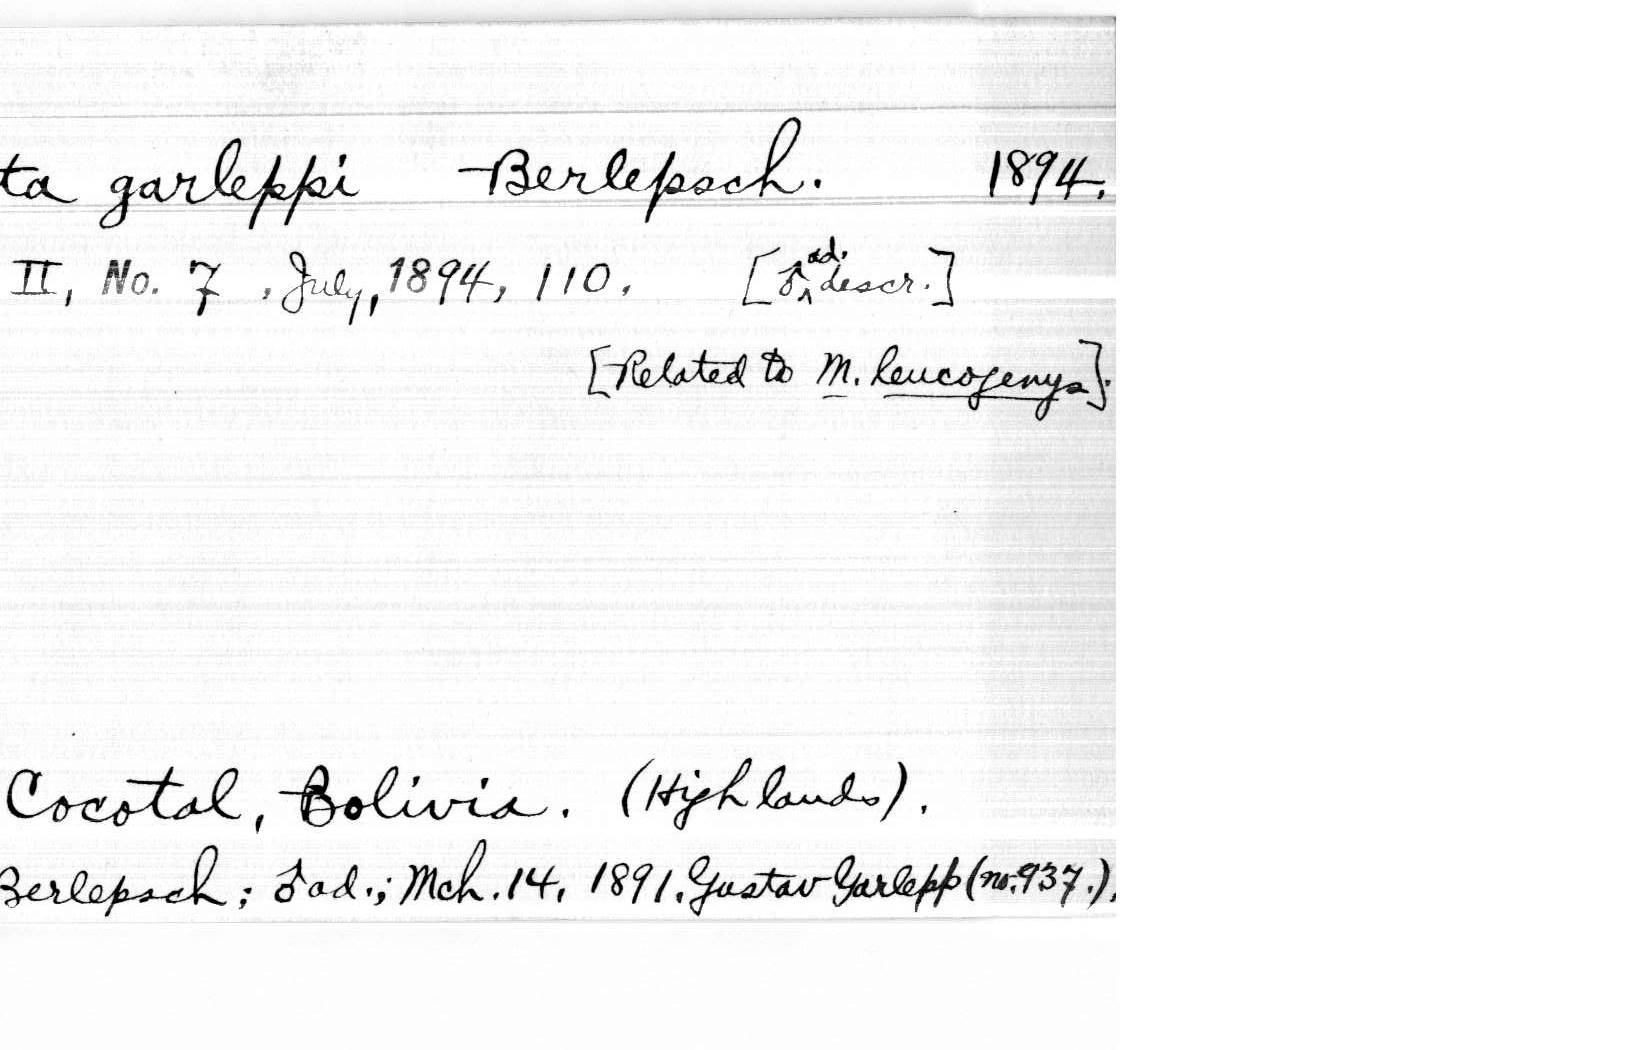 ta garleppi Berlepsch. 1894.
II, No. 7, July, 1894, 110. [♂ ad. descr.]
[Related to M. leucogenys].
Cocotal, Bolivia. (Highlands).
Berlepsch; ♂ ad.; Mch. 14, 1891. Gustav Garlepp (no. 937.).